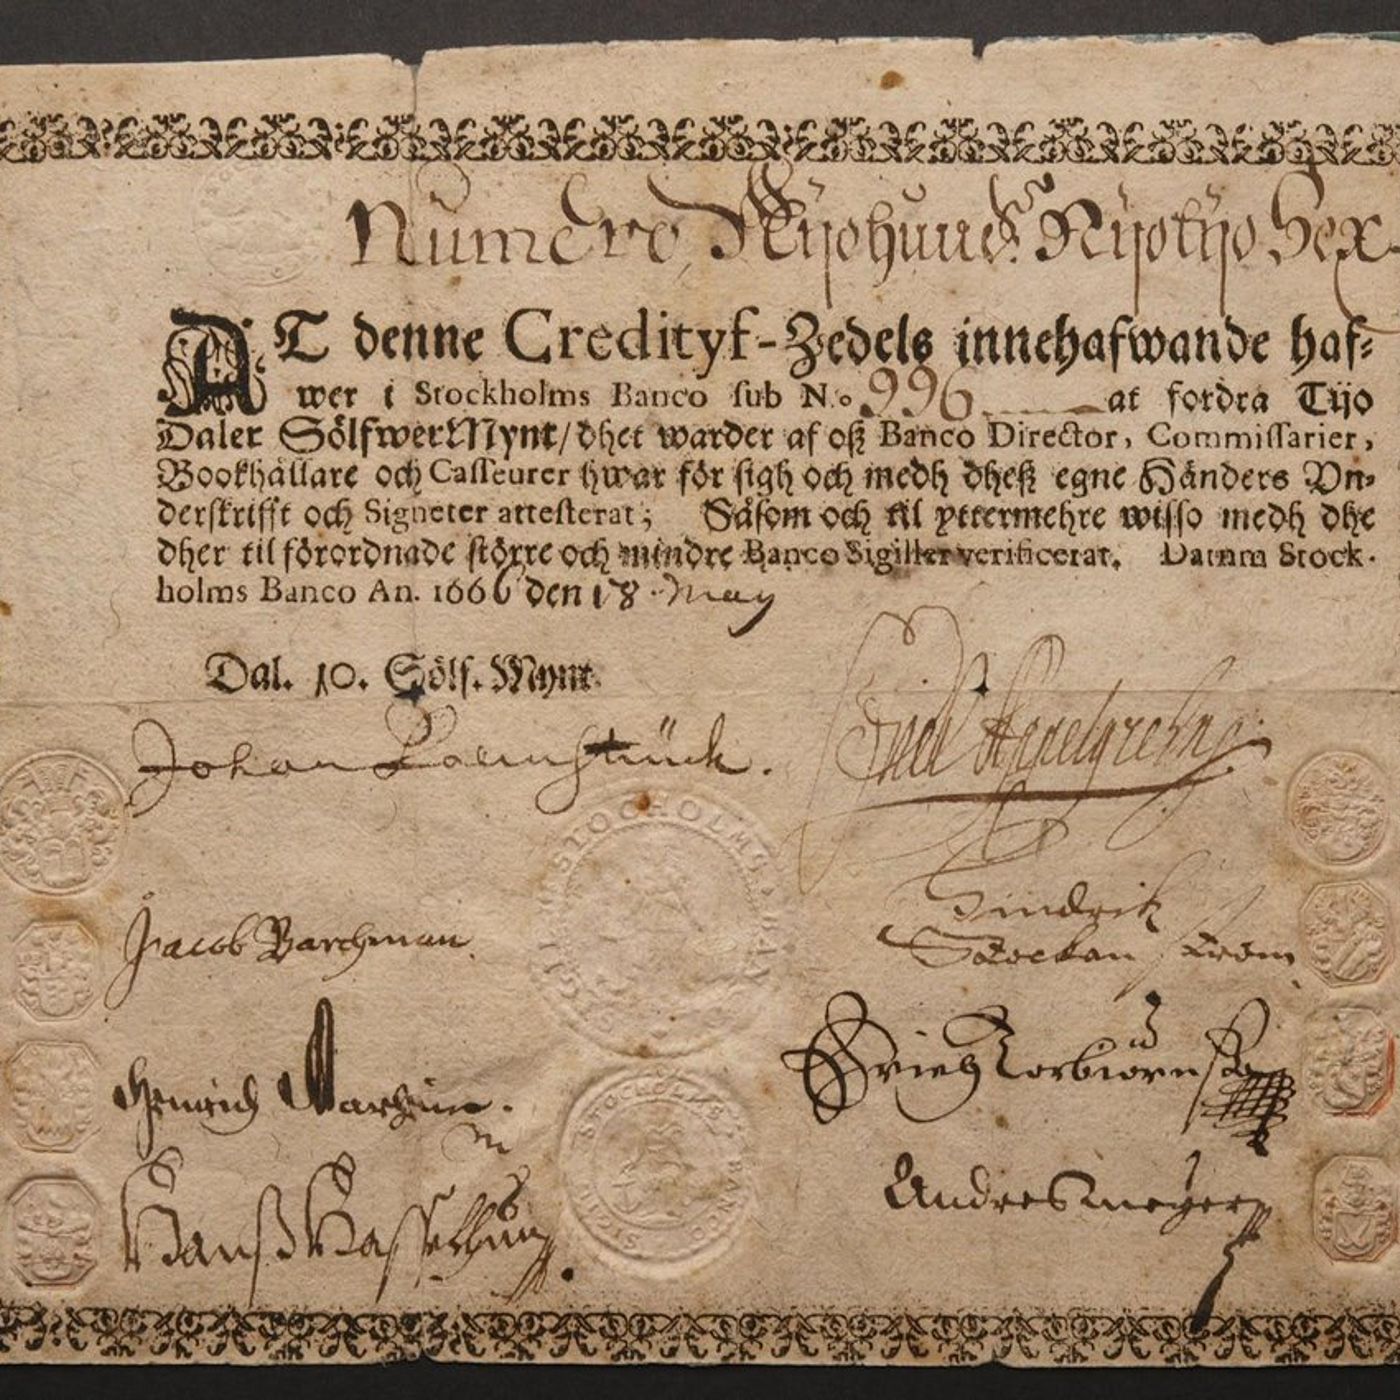 Numero, Nijohund. Nijotijo Sex
AT denne Credityf-Zedels innehafwande haf-
wer i Stockholms Banco sub N.o 996 at fordra Tijo
Daler SölfwerMynt/ dhet warder af oß Banco Director, Commissarier,
Bookhållare och Casseurer hwar för sigh och medh dheß egne Händers Vn-
derskrifft och Signeter attesterat; Såsom och til yttermehre wisso medh dhe
dher til förordnade större och mindre Banco Sigiller verificerat. Datum Stock-
holms Banco An. 1666 den 18. May
Dal. 10. Sölf. Mynt.
Johan
Jacob Barchman
Hindrik
Henrich
Erich Torbiörnson
Hanß
Andres meyer
STOCHOLMS BANCO
STOCHOLMS BANCO